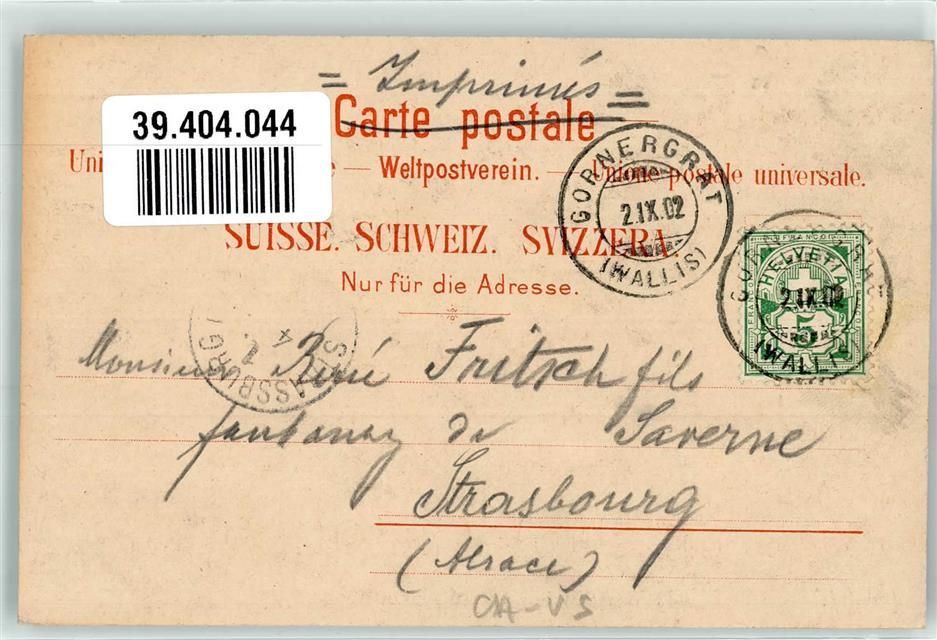 = Imprimés =
39.404.044
Carte postale
Uni e — Weltpostverein. — Unione postale universale.
SUISSE. SCHWEIZ. SVIZZERA.
Nur für die Adresse.
GORNERGRAT
2.IX.02
(WALLIS)
HELVETIA
2.IX.02
5
(WALLIS)
STRASSBURG
Monsieur René Fritsch fils
faubourg de Saverne
Strasbourg
(Alsace)
CH-VS